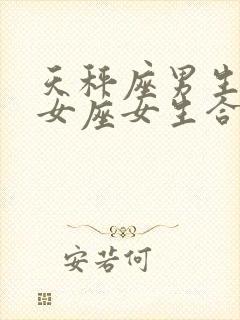 天秤座男生
女座女生合
安若何